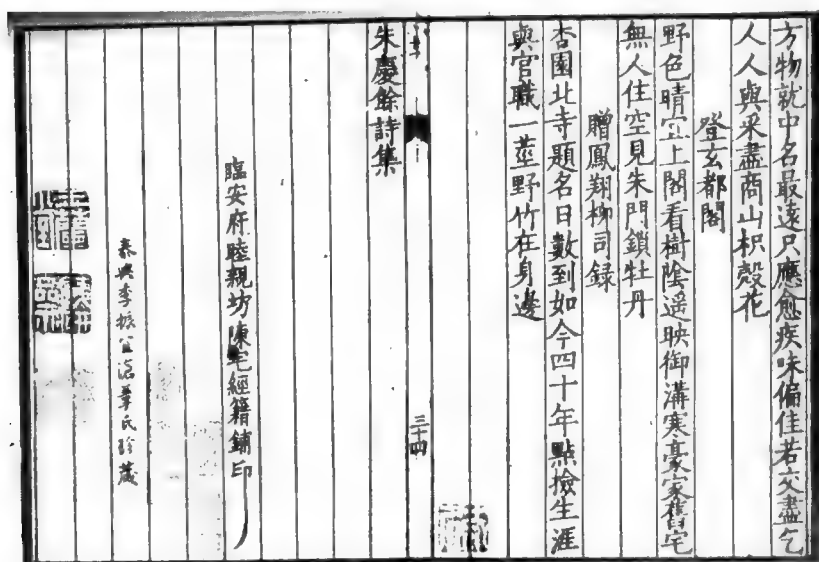 方物就中名最遠只應愈疾味偏佳若交盡乞
人人與采盡商山枳殼花
登玄都閣
野色晴宜上閣看樹陰遥映御溝寒豪家舊宅
無人住空見朱門鎖牡丹
贈鳳翔柳司録
杏園北寺題名日數到如今四十年點撿生涯
與官職一莖野竹在身邊
三十四
朱慶餘詩集
臨安府睦親坊陳宅經籍鋪印
泰興季振宜滄葦氏珍藏